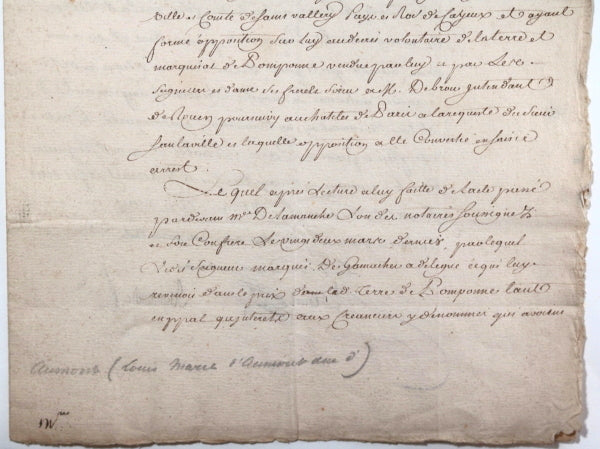 ville et Comté de Saint vallery Pays et Roc de Cayeux et ayant
formé opposition Sur luy au decret volontaire de la terre et
marquisat de Pomponne vendue par luy et par Les
Seigneur et dame Ses frere et Sœur a M. Debrou jntendant
de Rouen poursuivy au chatelet de Paris a la requeste du Sieur
Santaville et laquelle opposition a été Convertie en Saisie
arrest.
Lequel après Lecture a luy faitte de l'acte passé
pardevant Mre De Lamanche L'un des notaires Soussignez
et Son Confrere Le vingt deux mars dernier, par lequel
Led. Seigneur marquis De Gamaches a delegué ce qui luy
revenoit dans le prix de lad. Terre de Pomponne tant
en ppal qu'jnterets aux Creanciers y denommez qui avoient
Aumont (Louis Marie d'Aumont duc d')